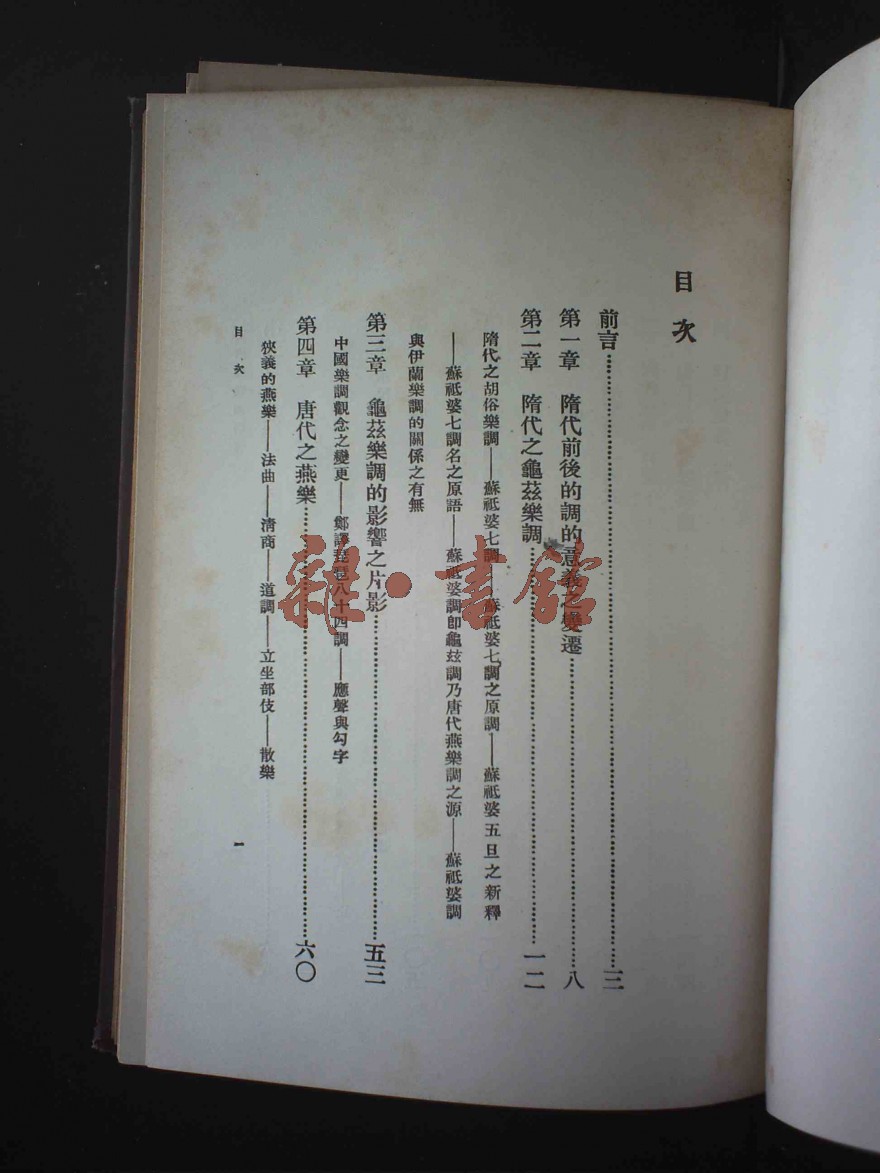 目次
前言……三
第一章　隋代前後的調的意義之變遷……八
第二章　隋代之龜茲樂調……一二
隋代之胡俗樂調——蘇祗婆七調——蘇祗婆七調之原調——蘇祗婆五旦之新釋
——蘇祗婆七調名之原語——蘇祗婆調卽龜玆調乃唐代燕樂調之源——蘇祗婆調
與伊蘭樂調的關係之有無
第三章　龜茲樂調的影響之片影……五三
中國樂調觀念之變更——鄭譯琵琶八十四調——應聲與勾字
第四章　唐代之燕樂……六〇
狹義的燕樂——法曲——淸商——道調——立坐部伎——散樂
目次
一
雜·書館